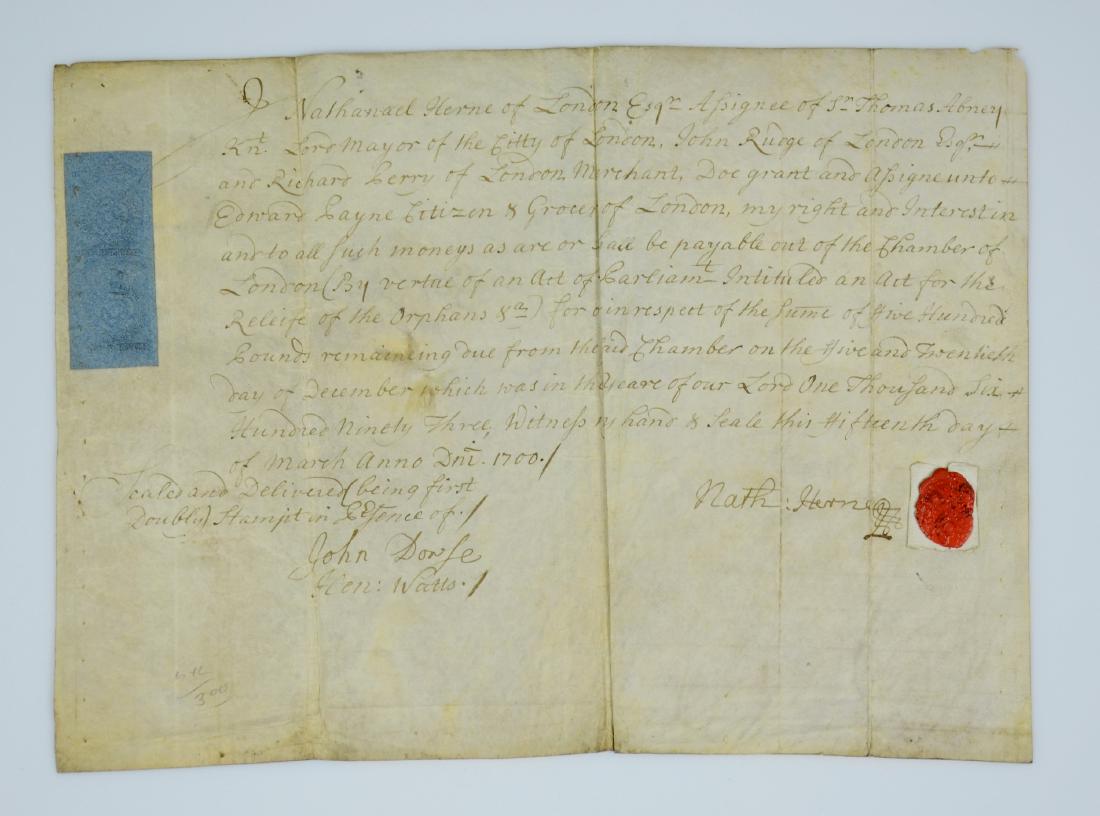 I Nathanael Herne of London Esqr. Assignee of Sr. Thomas Abney
Knt. Lord Mayor of the Citty of London, John Rudge of London Esqr.
and Richard Perry of London Merchant, Doe grant and Assigne unto
Edward Payne Citizen & Grocer of London, my right and Interest in
and to all such moneys as are or shall be payable out of the Chamber of
London (By vertue of an Act of Parliamt. Intituled an Act for the
Releife of the Orphans &a.) for or in respect of the sume of Five Hundred
Pounds remaineing due from the said Chamber on the Five and Twentieth
day of December which was in the yeare of our Lord One Thousand Six
Hundred Ninety Three, Witness my hand & Seale this Fifteenth day
of March Anno Dni. 1700./
Sealed and Delivered (being first
Doubly) Stampt in Presence of./
John Dowse
Hen: Watts./
Nath: Herne
300